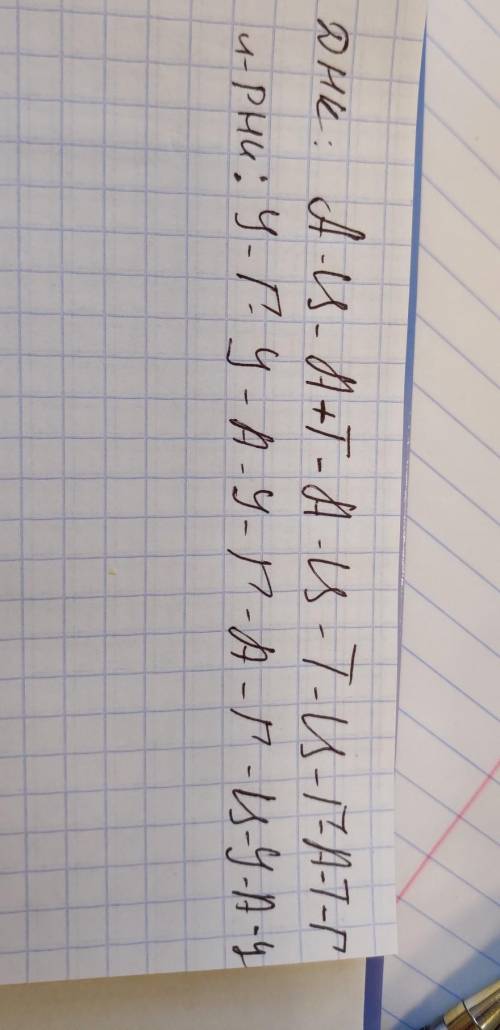 ДНК: А-Ц-А+Т-А-Ц-Т-Ц-Г-А-Т-Г
и-РНК: У-Г-У-А-У-Г-А-Г-Ц-У-А-Ц